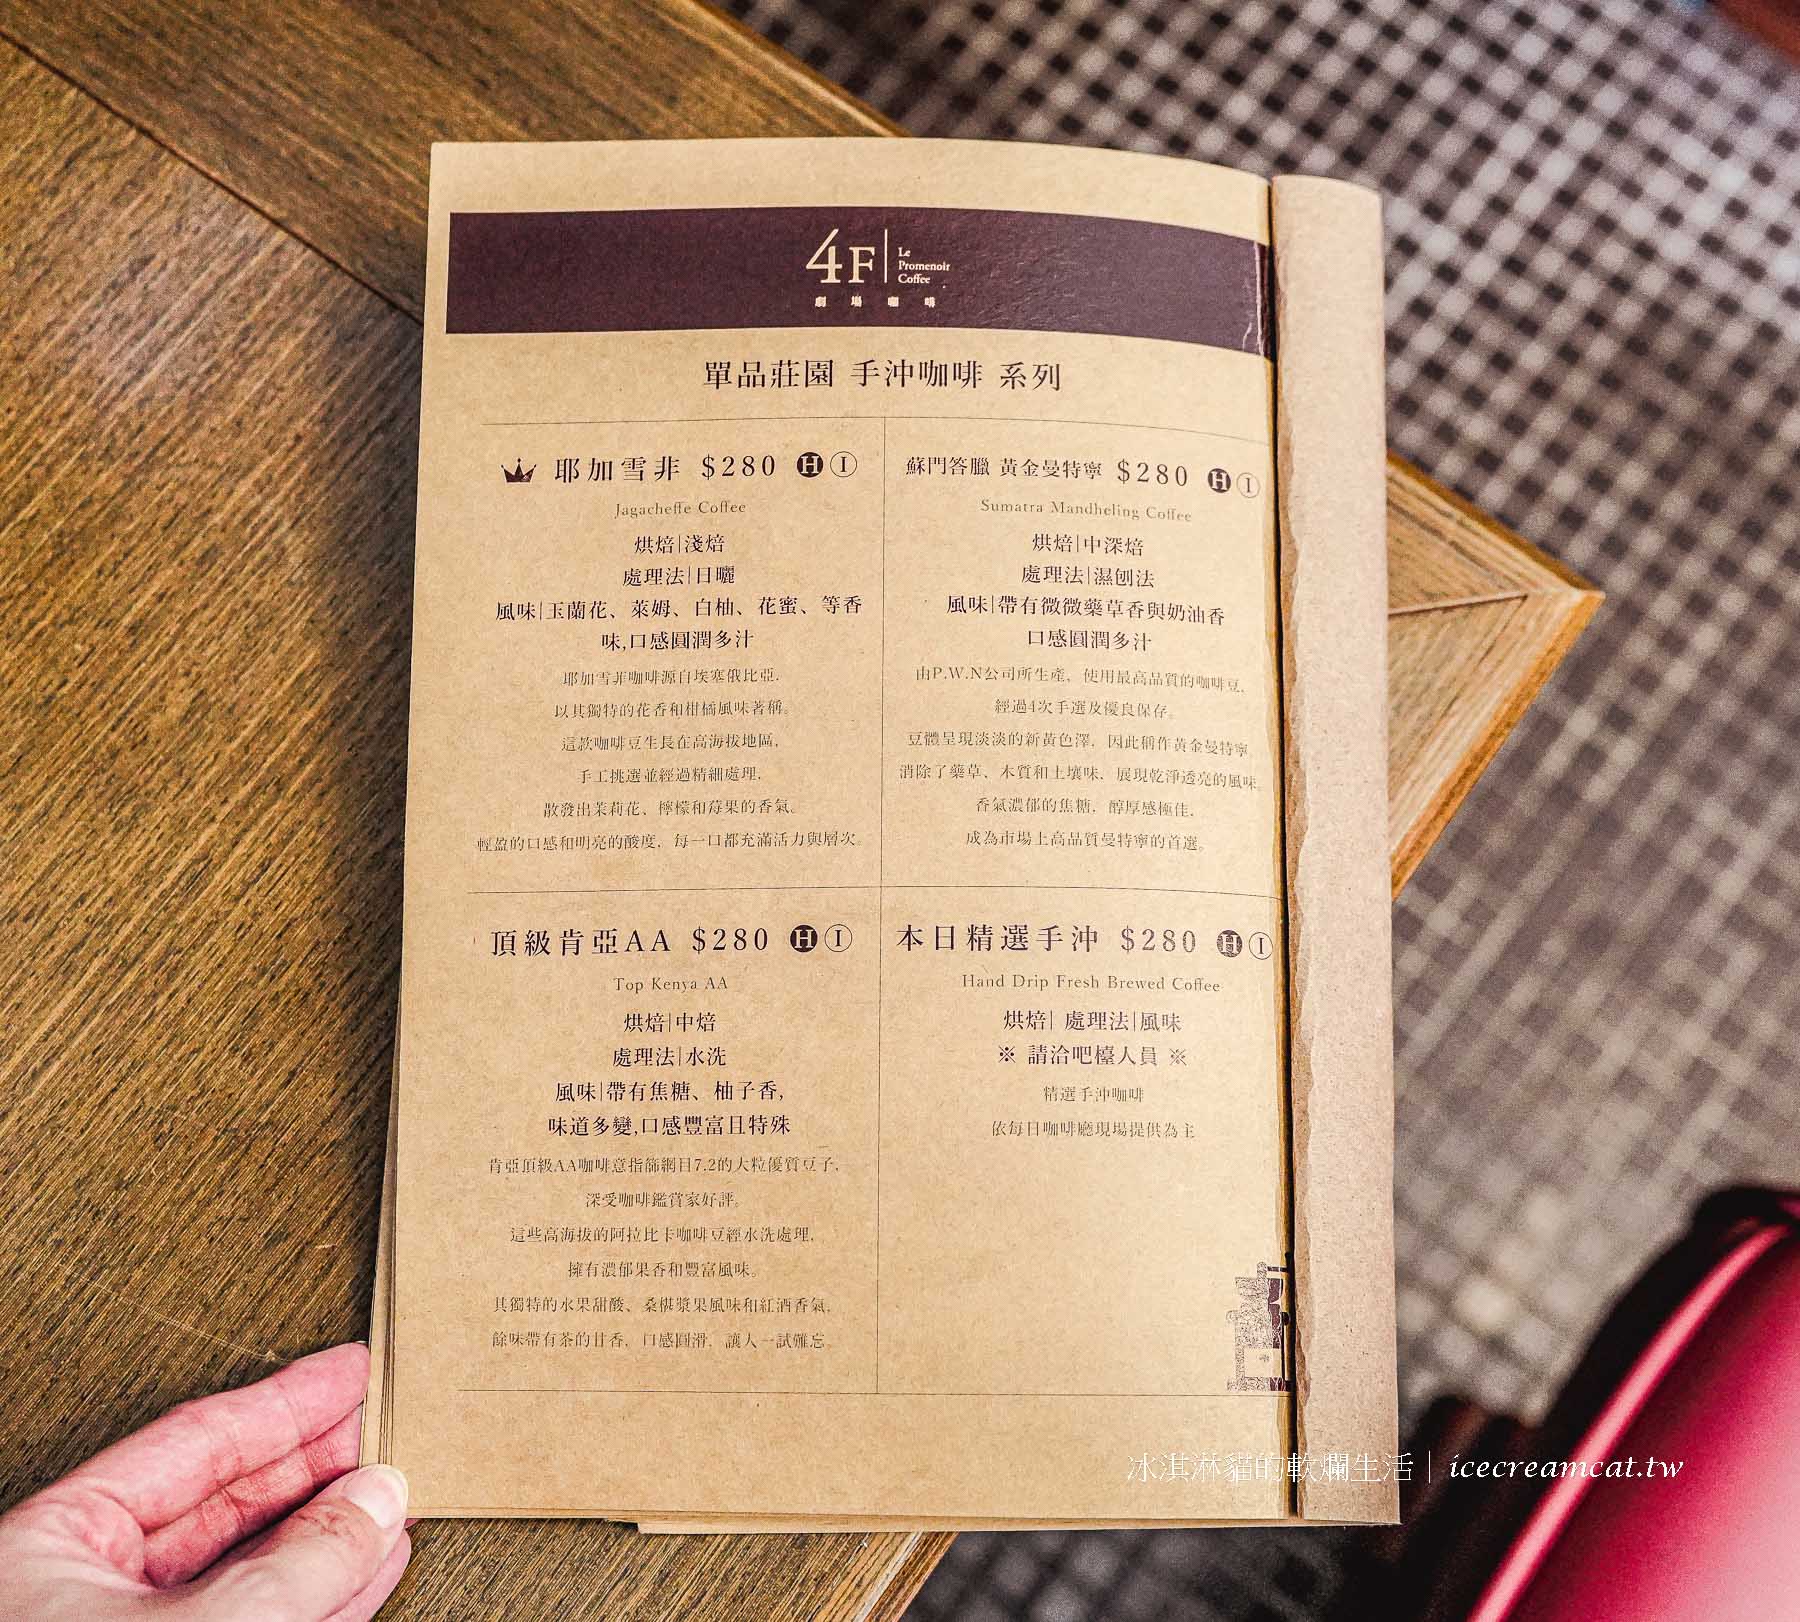 4F
Le
Promenoir
Coffee
劇場咖啡
單品莊園 手沖咖啡 系列
耶加雪非 $280 H I
Jagacheffe Coffee
烘焙|淺焙
處理法|日曬
風味|玉蘭花、萊姆、白柚、花蜜、等香
味,口感圓潤多汁
耶加雪菲咖啡源自埃塞俄比亞,
以其獨特的花香和柑橘風味著稱。
這款咖啡豆生長在高海拔地區,
手工挑選並經過精細處理,
散發出茉莉花、檸檬和莓果的香氣。
輕盈的口感和明亮的酸度, 每一口都充滿活力與層次。
蘇門答臘 黃金曼特寧 $280 H I
Sumatra Mandheling Coffee
烘焙|中深焙
處理法|濕刨法
風味|帶有微微藥草香與奶油香
口感圓潤多汁
由P.W.N公司所生產, 使用最高品質的咖啡豆,
經過4次手選及優良保存。
豆體呈現淡淡的新黃色澤, 因此稱作黃金曼特寧
消除了藥草、木質和土壤味, 展現乾淨透亮的風味。
香氣濃郁的焦糖, 醇厚感極佳,
成為市場上高品質曼特寧的首選。
頂級肯亞AA $280 H I
Top Kenya AA
烘焙|中焙
處理法|水洗
風味|帶有焦糖、柚子香,
味道多變,口感豐富且特殊
肯亞頂級AA咖啡意指篩網目7.2的大粒優質豆子,
深受咖啡鑑賞家好評。
這些高海拔的阿拉比卡咖啡豆經水洗處理,
擁有濃郁果香和豐富風味。
其獨特的水果甜酸、桑椹漿果風味和紅酒香氣,
餘味帶有茶的甘香, 口感圓滑, 讓人一試難忘。
本日精選手沖 $280 H I
Hand Drip Fresh Brewed Coffee
烘焙| 處理法|風味
※ 請洽吧檯人員 ※
精選手沖咖啡
依每日咖啡廳現場提供為主
冰淇淋貓的軟爛生活|icecreamcat.tw